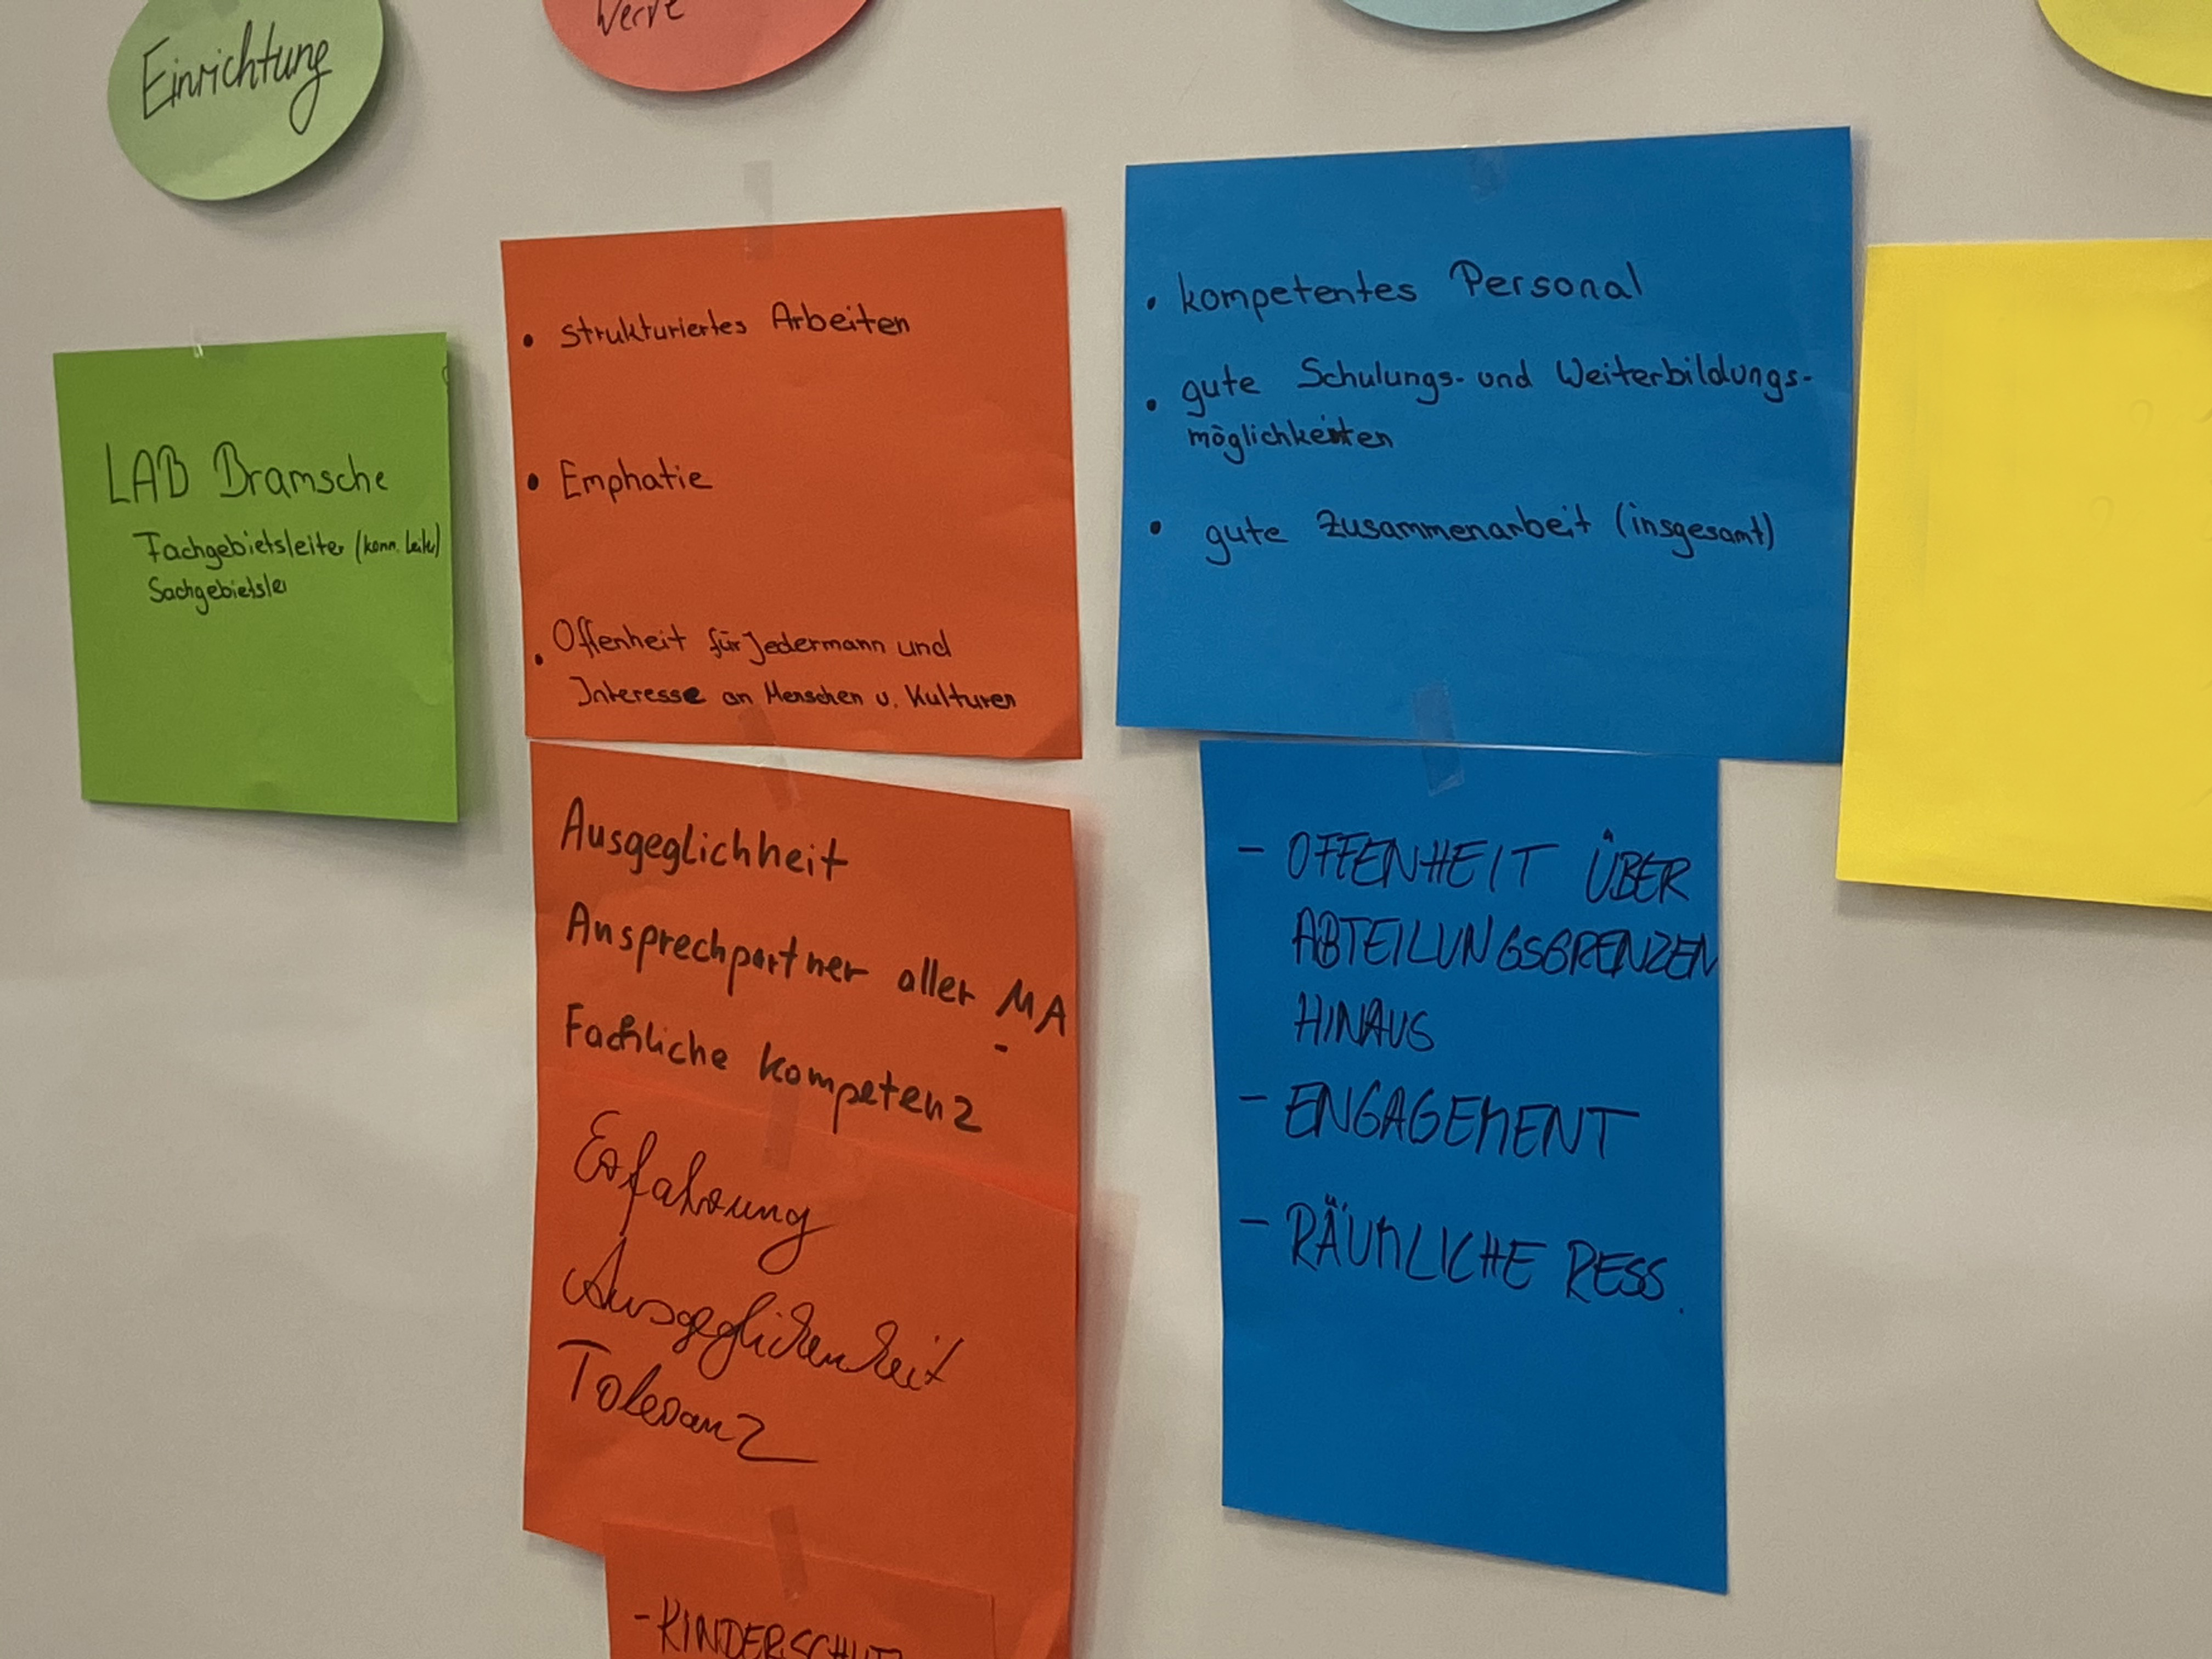 Einrichtung
Werte
LAB Bramsche
Fachgebietsleiter (komm. Leiter)
Sachgebietslei
• strukturiertes Arbeiten
• Emphatie
• Offenheit für Jedermann und
Interesse an Menschen u. Kulturen
Ausgeglichheit
Ansprechpartner aller MA
Fachliche Kompetenz
Erfahrung
Ausgeglichenheit
Toleranz
- KINDERSCHUTZ
• kompetentes Personal
• gute Schulungs- und Weiterbildungs-
möglichkeiten
• gute Zusammenarbeit (insgesamt)
- OFFENHEIT ÜBER
ABTEILUNGSGRENZEN
HINAUS
- ENGAGEMENT
- RÄUMLICHE RESS.